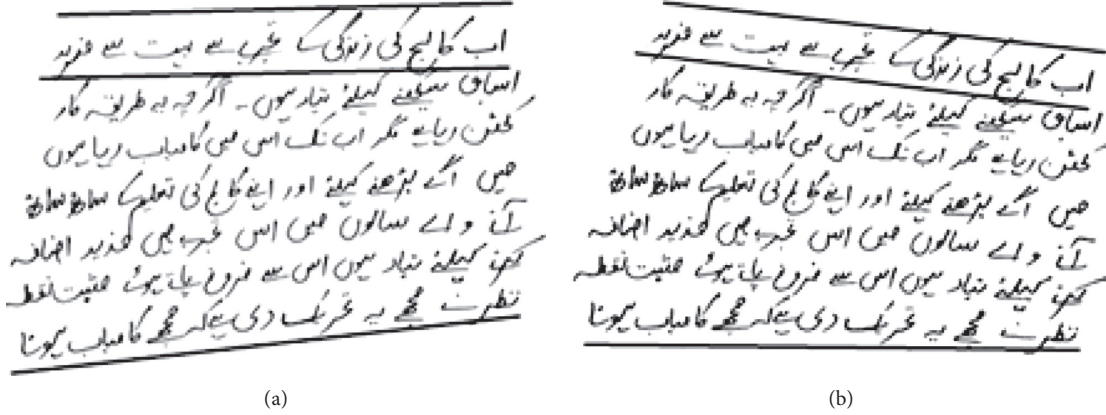 اب کالج کی زندگی کے تجربے سے بہت سے مزید
اسباق سیکھنے کیلئے تیار ہوں۔ اگرچہ یہ طریقہ کار
کٹھن رہا ہے مگر اب تک اس میں کامیاب رہا ہوں
میں آگے بڑھنے کیلئے اور اپنے کالج کی تعلیم کے ساتھ ساتھ
آنے والے سالوں میں اس تجربے میں مزید اضافہ
کرنے کیلئے تیار ہوں اس سے فروغ پاتے ہوئے مثبت نقطہ
نظر نے مجھے یہ تحریک دی ہے کہ مجھے کامیاب ہونا
(a)
اب کالج کی زندگی کے تجربے سے بہت سے مزید
اسباق سیکھنے کیلئے تیار ہوں۔ اگرچہ یہ طریقہ کار
کٹھن رہا ہے مگر اب تک اس میں کامیاب رہا ہوں
میں آگے بڑھنے کیلئے اور اپنے کالج کی تعلیم کے ساتھ ساتھ
آنے والے سالوں میں اس تجربے میں مزید اضافہ
کرنے کیلئے تیار ہوں اس سے فروغ پاتے ہوئے مثبت نقطہ
نظر نے مجھے یہ تحریک دی ہے کہ مجھے کامیاب ہونا
(b)